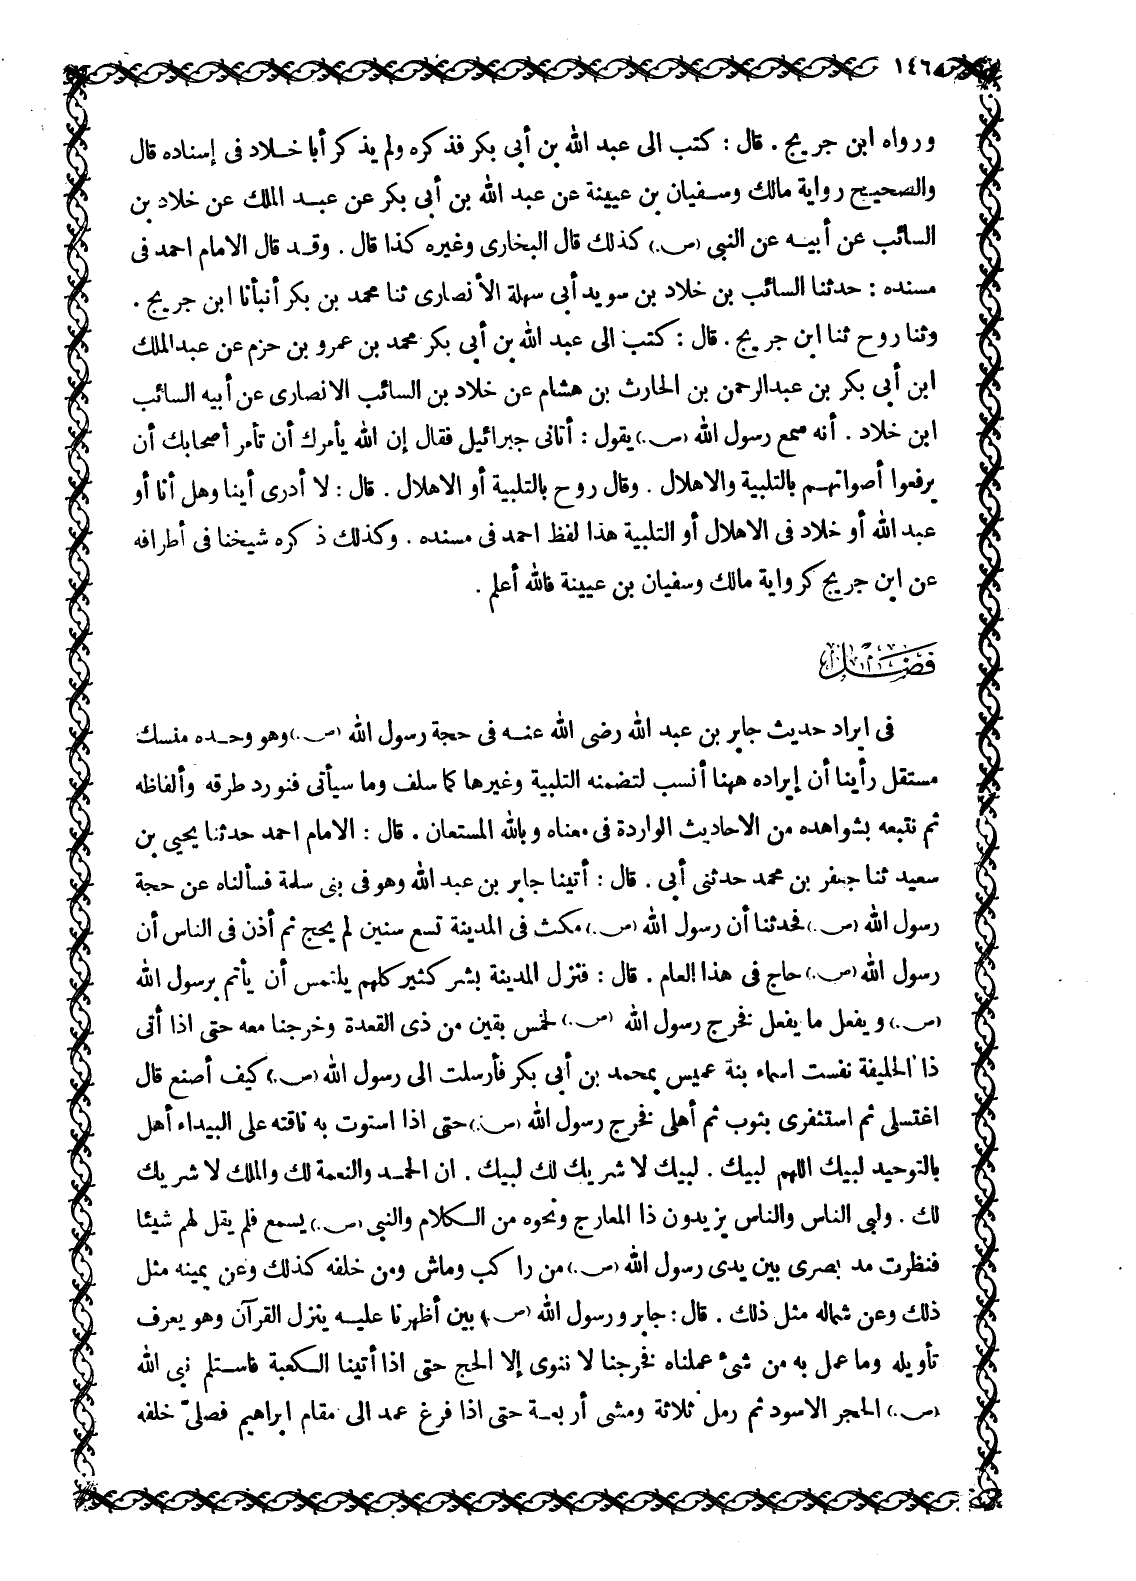 ١٤٦
ورواه ابن جريج. قال: كتب الى عبد الله بن أبى بكر فذكره ولم يذكر أبا خلاد فى إسناده قال
والصحيح رواية مالك وسفيان بن عيينة عن عبد الله بن أبى بكر عن عبد الملك عن خلاد بن
السائب عن أبيه عن النبى (ص.) كذلك قال البخارى وغيره كذا قال. وقد قال الامام احمد فى
مسنده: حدثنا السائب بن خلاد بن سويد أبى سهلة الأنصارى ثنا محمد بن بكر أنبأنا ابن جريج.
وثنا روح ثنا ابن جريج. قال: كتب الى عبد الله بن أبى بكر محمد بن عمرو بن حزم عن عبدالملك
ابن أبى بكر بن عبدالرحمن بن الحارث بن هشام عن خلاد بن السائب الانصارى عن أبيه السائب
ابن خلاد. أنه سمع رسول الله (ص.) يقول: أتانى جبرائيل فقال إن الله يأمرك أن تأمر أصحابك أن
يرفعوا أصواتهم بالتلبية والاهلال. وقال روح بالتلبية أو الاهلال. قال: لا أدرى أينا وهل أنا أو
عبد الله أو خلاد فى الاهلال أو التلبية هذا لفظ احمد فى مسنده. وكذلك ذكره شيخنا فى أطرافه
عن ابن جريج كرواية مالك وسفيان بن عيينة فالله أعلم.
فصل
فى ايراد حديث جابر بن عبد الله رضى الله عنه فى حجة رسول الله (ص.) وهو وحده منسك
مستقل رأينا أن إيراده ههنا أنسب لتضمنه التلبية وغيرها كما سلف وما سيأتى فنورد طرقه وألفاظه
ثم نتبعه بشواهده من الاحاديث الواردة فى معناه وبالله المستعان. قال: الامام احمد حدثنا يحيى بن
سعيد ثنا جعفر بن محمد حدثنى أبى. قال: أتينا جابر بن عبد الله وهو فى بنى سلمة فسألناه عن حجة
رسول الله (ص.) فحدثنا أن رسول الله (ص.) مكث فى المدينة تسع سنين لم يحج ثم أذن فى الناس أن
رسول الله (ص.) حاج فى هذا العام. قال: فنزل المدينة بشر كثير كلهم يلتمس أن يأتم برسول الله
(ص.) ويفعل ما يفعل فخرج رسول الله (ص.) لخمس بقين من ذى القعدة وخرجنا معه حتى اذا أتى
ذا الحليفة نفست اسماء بنة عميس بمحمد بن أبى بكر فأرسلت الى رسول الله (ص.) كيف أصنع قال
اغتسلى ثم استثفرى بثوب ثم أهلى فخرج رسول الله (ص.) حتى اذا استوت به ناقته على البيداء أهل
بالتوحيد لبيك اللهم لبيك. لبيك لا شريك لك لبيك. ان الحمد والنعمة لك والملك لا شريك
لك. ولبى الناس والناس يزيدون ذا المعارج ونحوه من الكلام والنبى (ص.) يسمع فلم يقل لهم شيئا
فنظرت مد بصرى بين يدى رسول الله (ص.) من راكب وماش ومن خلفه كذلك وعن يمينه مثل
ذلك وعن شماله مثل ذلك. قال: جابر ورسول الله (ص.) بين أظهرنا عليه ينزل القرآن وهو يعرف
تأويله وما عمل به من شىء عملناه فخرجنا لا ننوى إلا الحج حتى اذا أتينا الكعبة فاستلم نبى الله
(ص.) الحجر الاسود ثم رمل ثلاثة ومشى أربعة حتى اذا فرغ عمد الى مقام ابراهيم فصلى خلفه